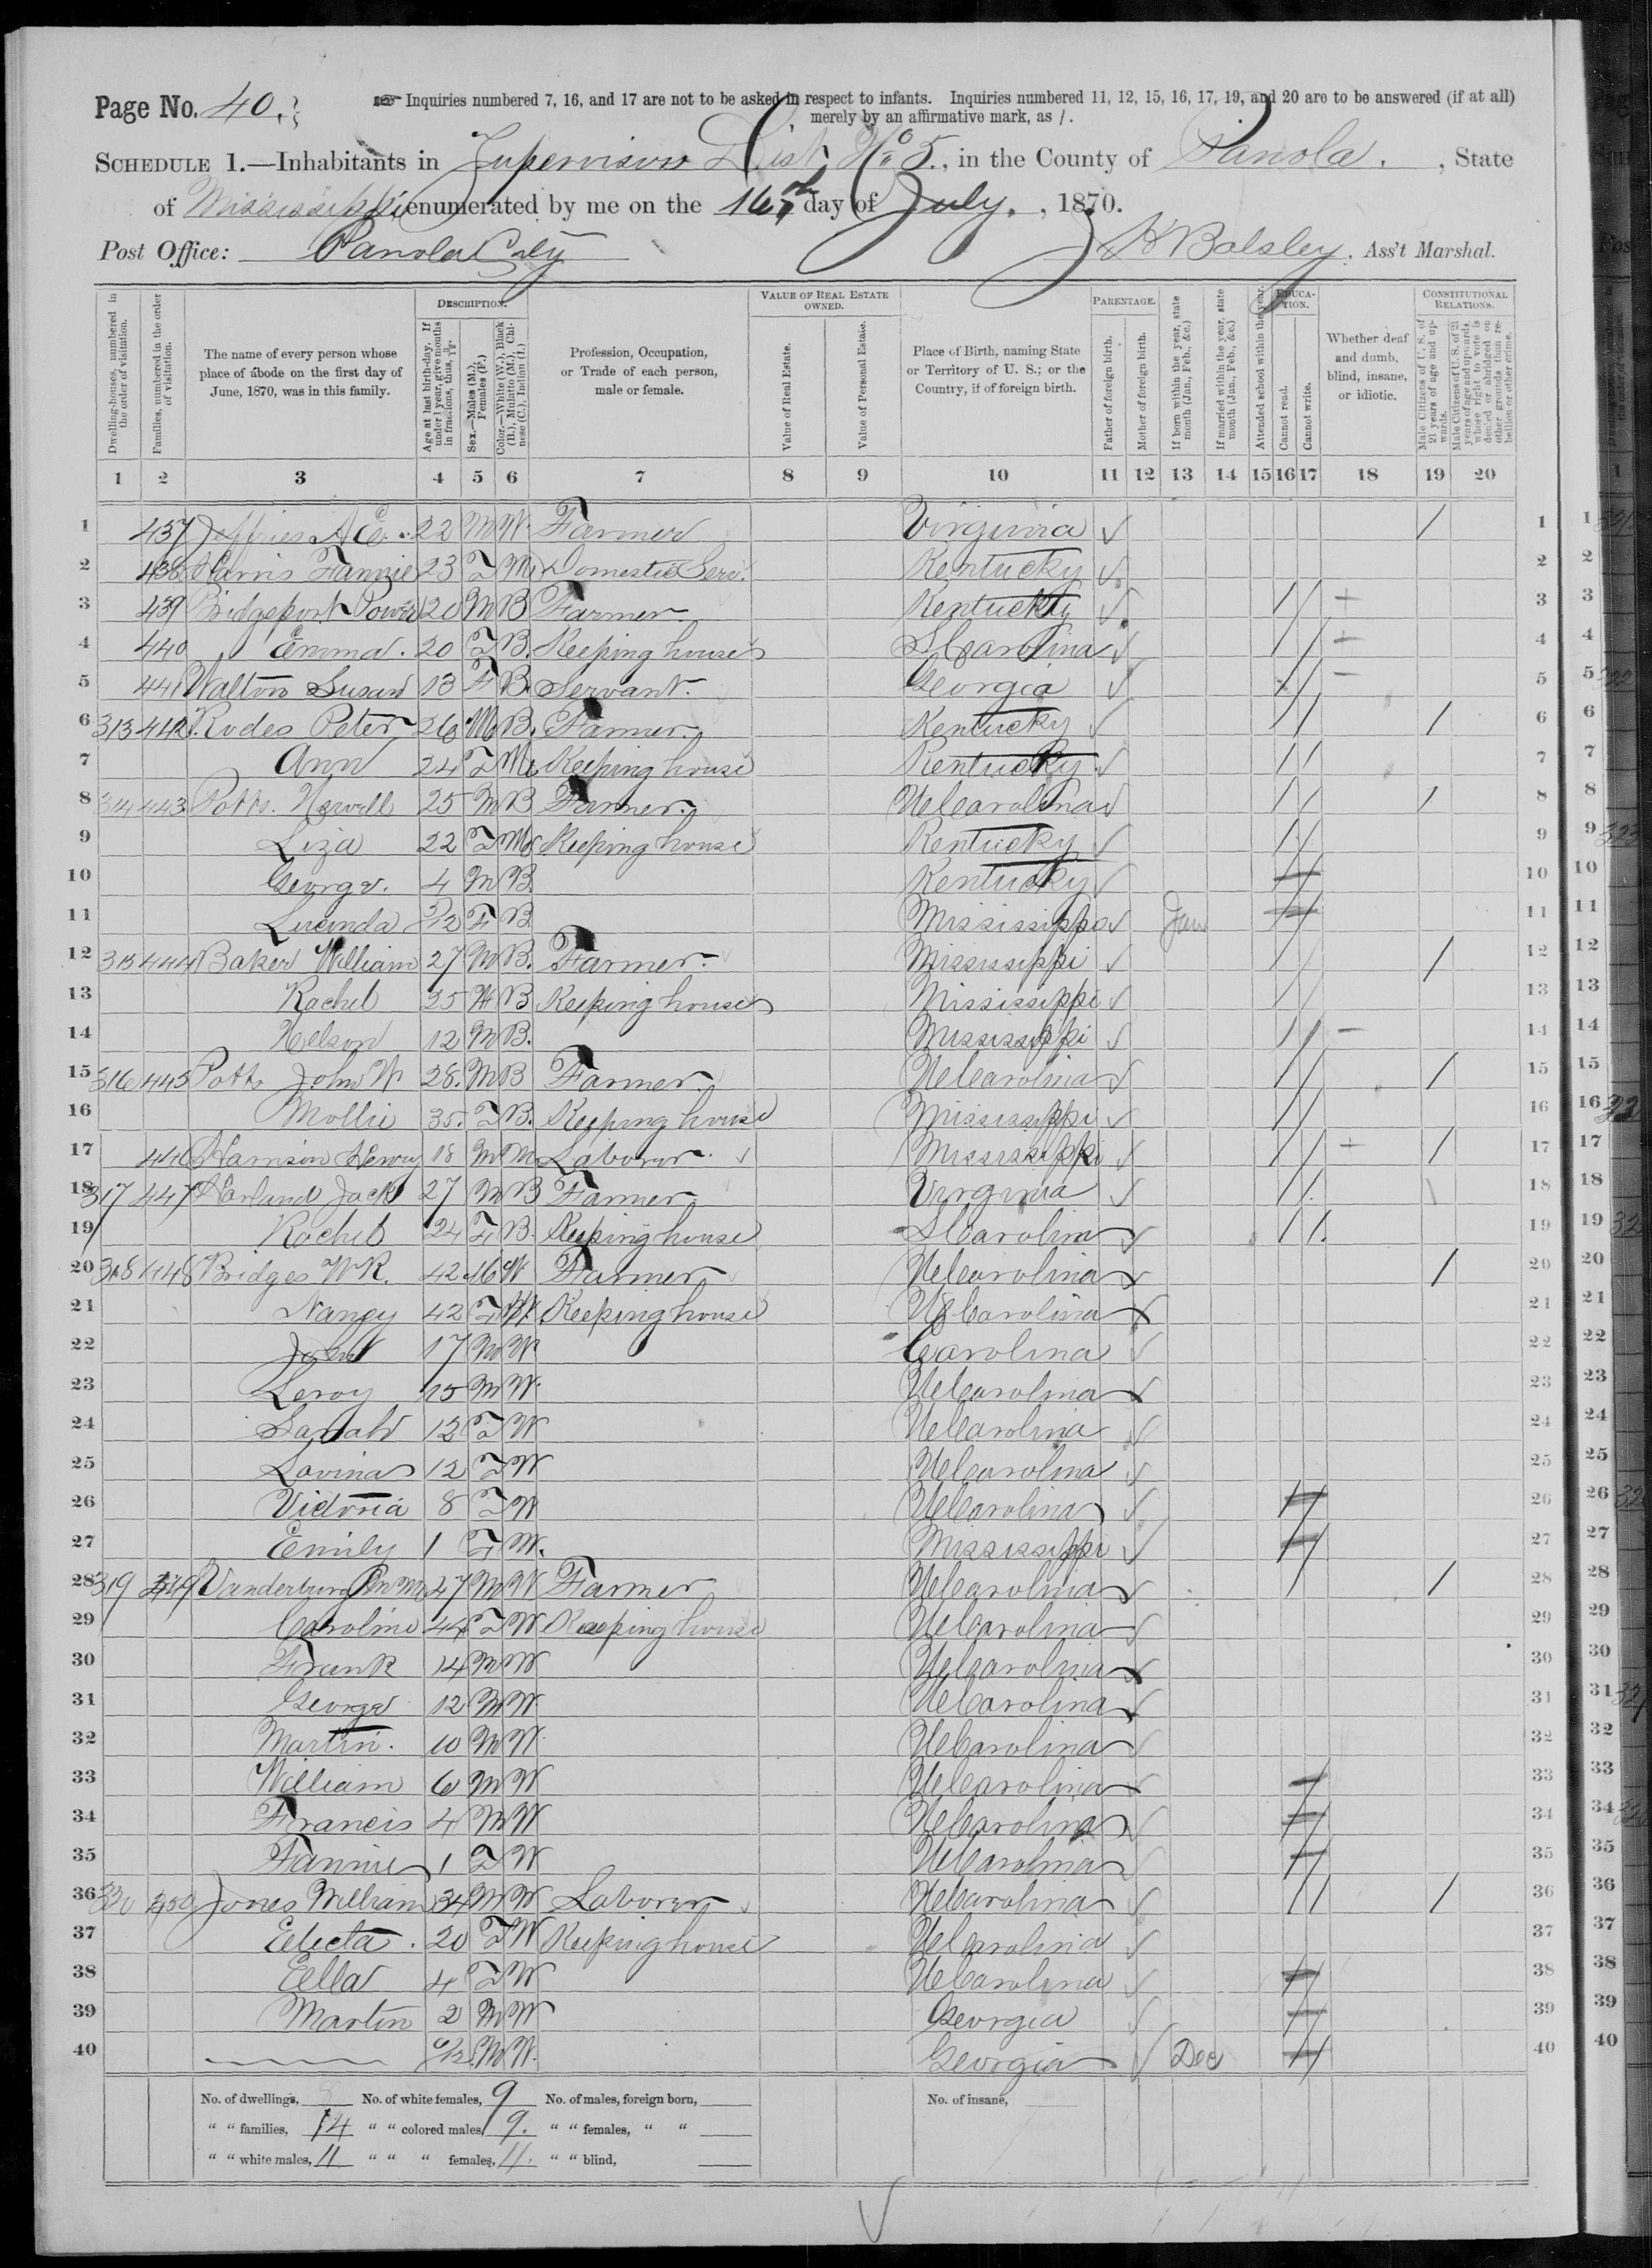 Page No. 40.
Inquiries numbered 7, 16, and 17 are not to be asked in respect to infants. Inquiries numbered 11, 12, 15, 16, 17, 19, and 20 are to be answered (if at all)
merely by an affirmative mark, as /.
SCHEDULE 1.—Inhabitants in Supervisors Dist. No 5., in the County of Panola., State
of Mississippi enumerated by me on the 16th day of July., 1870.
Post Office: Panola City
Balsley. Ass't Marshal.
Dwelling-houses, numbered in the order of visitation.
Families, numbered in the order of visitation.
The name of every person whose place of abode on the first day of June, 1870, was in this family.
DESCRIPTION.
Age at last birth-day. If under 1 year, give months in fractions, thus, 3/12.
Sex.—Males (M.), Females (F.)
Color.—White (W.), Black (B.), Mulatto (M.), Chinese (C.), Indian (I.)
Profession, Occupation, or Trade of each person, male or female.
VALUE OF REAL ESTATE OWNED.
Value of Real Estate.
Value of Personal Estate.
Place of Birth, naming State or Territory of U. S.; or the Country, if of foreign birth.
PARENTAGE.
Father of foreign birth.
Mother of foreign birth.
If born within the year, state month (Jan., Feb., &c.)
If married within the year, state month (Jan., Feb., &c.)
Attended school within the year.
EDUCATION.
Cannot read.
Cannot write.
Whether deaf and dumb, blind, insane, or idiotic.
CONSTITUTIONAL RELATIONS.
Male Citizens of U. S. of 21 years of age and upwards.
Male Citizens of U. S. of 21 years of age and upwards, whose right to vote is denied or abridged on other grounds than rebellion or other crime.
1 2 3 4 5 6 7 8 9 10 11 12 13 14 15 16 17 18 19 20
1 437 Jeffries A E. 22 M W. Farmer Virginia / 1
2 438 Harris Fannie 23 F M Domestic Serv. Kentucky 2
3 439 Bridgeport Power 20 M B Farmer Kentucky / / 3
4 440 Emma. 20 F B. Keeping house S Carolina / / 4
5 441 Walton Susan 13 F B. Servant. Georgia / / 5
6 313 442 Rodes Peter 26 M B. Farmer. Kentucky / / / 6
7 Ann 24 F M Keeping house Kentucky / / 7
8 314 443 Potts. Newell 25 M B Farmer. N Carolina / / / 8
9 Liza 22 F M Keeping house Kentucky / / 9
10 George. 4 M B. Kentucky 10
11 Lucinda F B Mississippi Jan 11
12 315 444 Baker William 27 M B. Farmer. Mississippi / / / 12
13 Rachel 25 B Keeping house Mississippi / / 13
14 Nelson 12 M B. Mississippi / / 14
15 316 445 Potts John W 28. M B Farmer. N Carolina / / / 15
16 Mollie 35. F B. Keeping house Mississippi / / 16
17 446 Harrison Henry 18 M M Laborer. Mississippi / / / 17
18 317 447 Harland Jack 27 M B Farmer Virginia / / 18
19 Rachel 24 F B. Keeping house S Carolina / / 19
20 318 448 Bridges W R. 42 M W Farmer N Carolina / 20
21 Nancy 42 F W. Keeping house N Carolina 21
22 John 17 M W Carolina 22
23 Leroy 15 M W. N Carolina 23
24 Sarah 12 F W N Carolina 24
25 Lovina 12 F W N Carolina 25
26 Victoria 8 F W N Carolina 26
27 Emily 1 F W. Mississippi 27
28 319 449 Vanderburg 47 M W Farmer N Carolina / / 28
29 Caroline 44 F W Keeping house N Carolina 29
30 Frank 14 M W N Carolina 30
31 George 12 M W. N Carolina 31
32 Martin. 10 M W. N Carolina 32
33 William 6 M W N Carolina 33
34 Francis 4 M W N Carolina 34
35 Fannie 1 F W N Carolina 35
36 320 450 Jones William 34 M W Laborer N Carolina / / / 36
37 Electa. 20 F W Keeping house N Carolina 37
38 Ella 4 F W N Carolina 38
39 Martin 2 M W Georgia 39
40 M W. Georgia Dec 40
No. of dwellings, No. of white females, 9 No. of males, foreign born, No. of insane,
" " families, 14 " " colored males, 9. " " females, " "
" " white males, 11 " " " females, 11. " " blind,